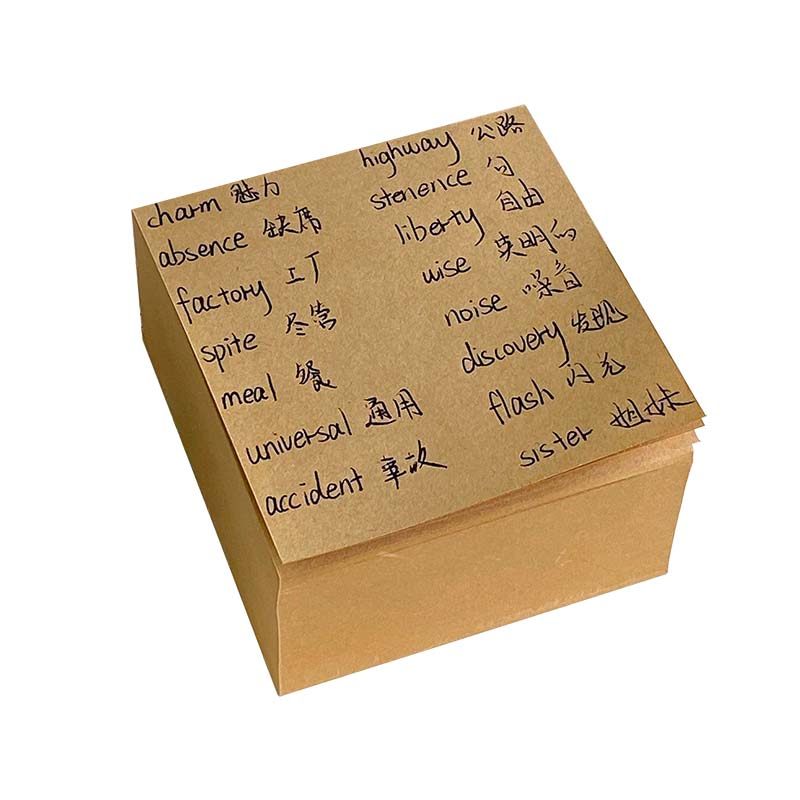 charm 魅力
absence 缺席
factory 工厂
spite 尽管
meal 餐
universal 通用
accident 事故
highway 公路
stenence 句
liberty 自由
wise 英明的
noise 噪音
discovery 发现
flash 闪光
sister 姐妹